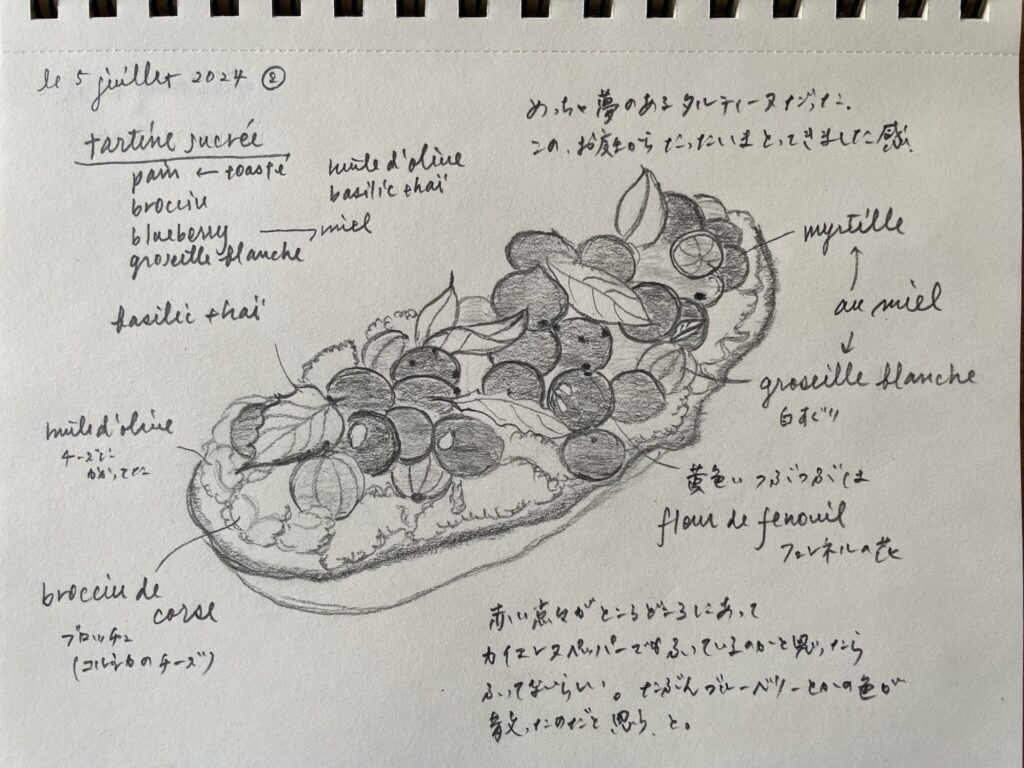 le 5 juillet 2024 ②
tartine sucrée
pain ← toasté
brocciu
blueberry → miel
groseille blanche
huile d'olive
basilic thaï
めっちゃ夢のあるタルティーヌだった。
この、お庭からたったいまとってきました感！
basilic thaï
huile d'olive
チーズに
かかってた
brocciu de
corse
ブロッチュ
(コルシカのチーズ)
myrtille
↑
au miel
↓
groseille blanche
白すぐり
黄色いつぶつぶは
fleur de fenouil
フェンネルの花
赤い点々がところどころにあって
カイエンヌペッパーでもふっているのかと思ったら
ふってないらしい。たぶんブルーベリーとかの色が
散ったのだと思う、と。